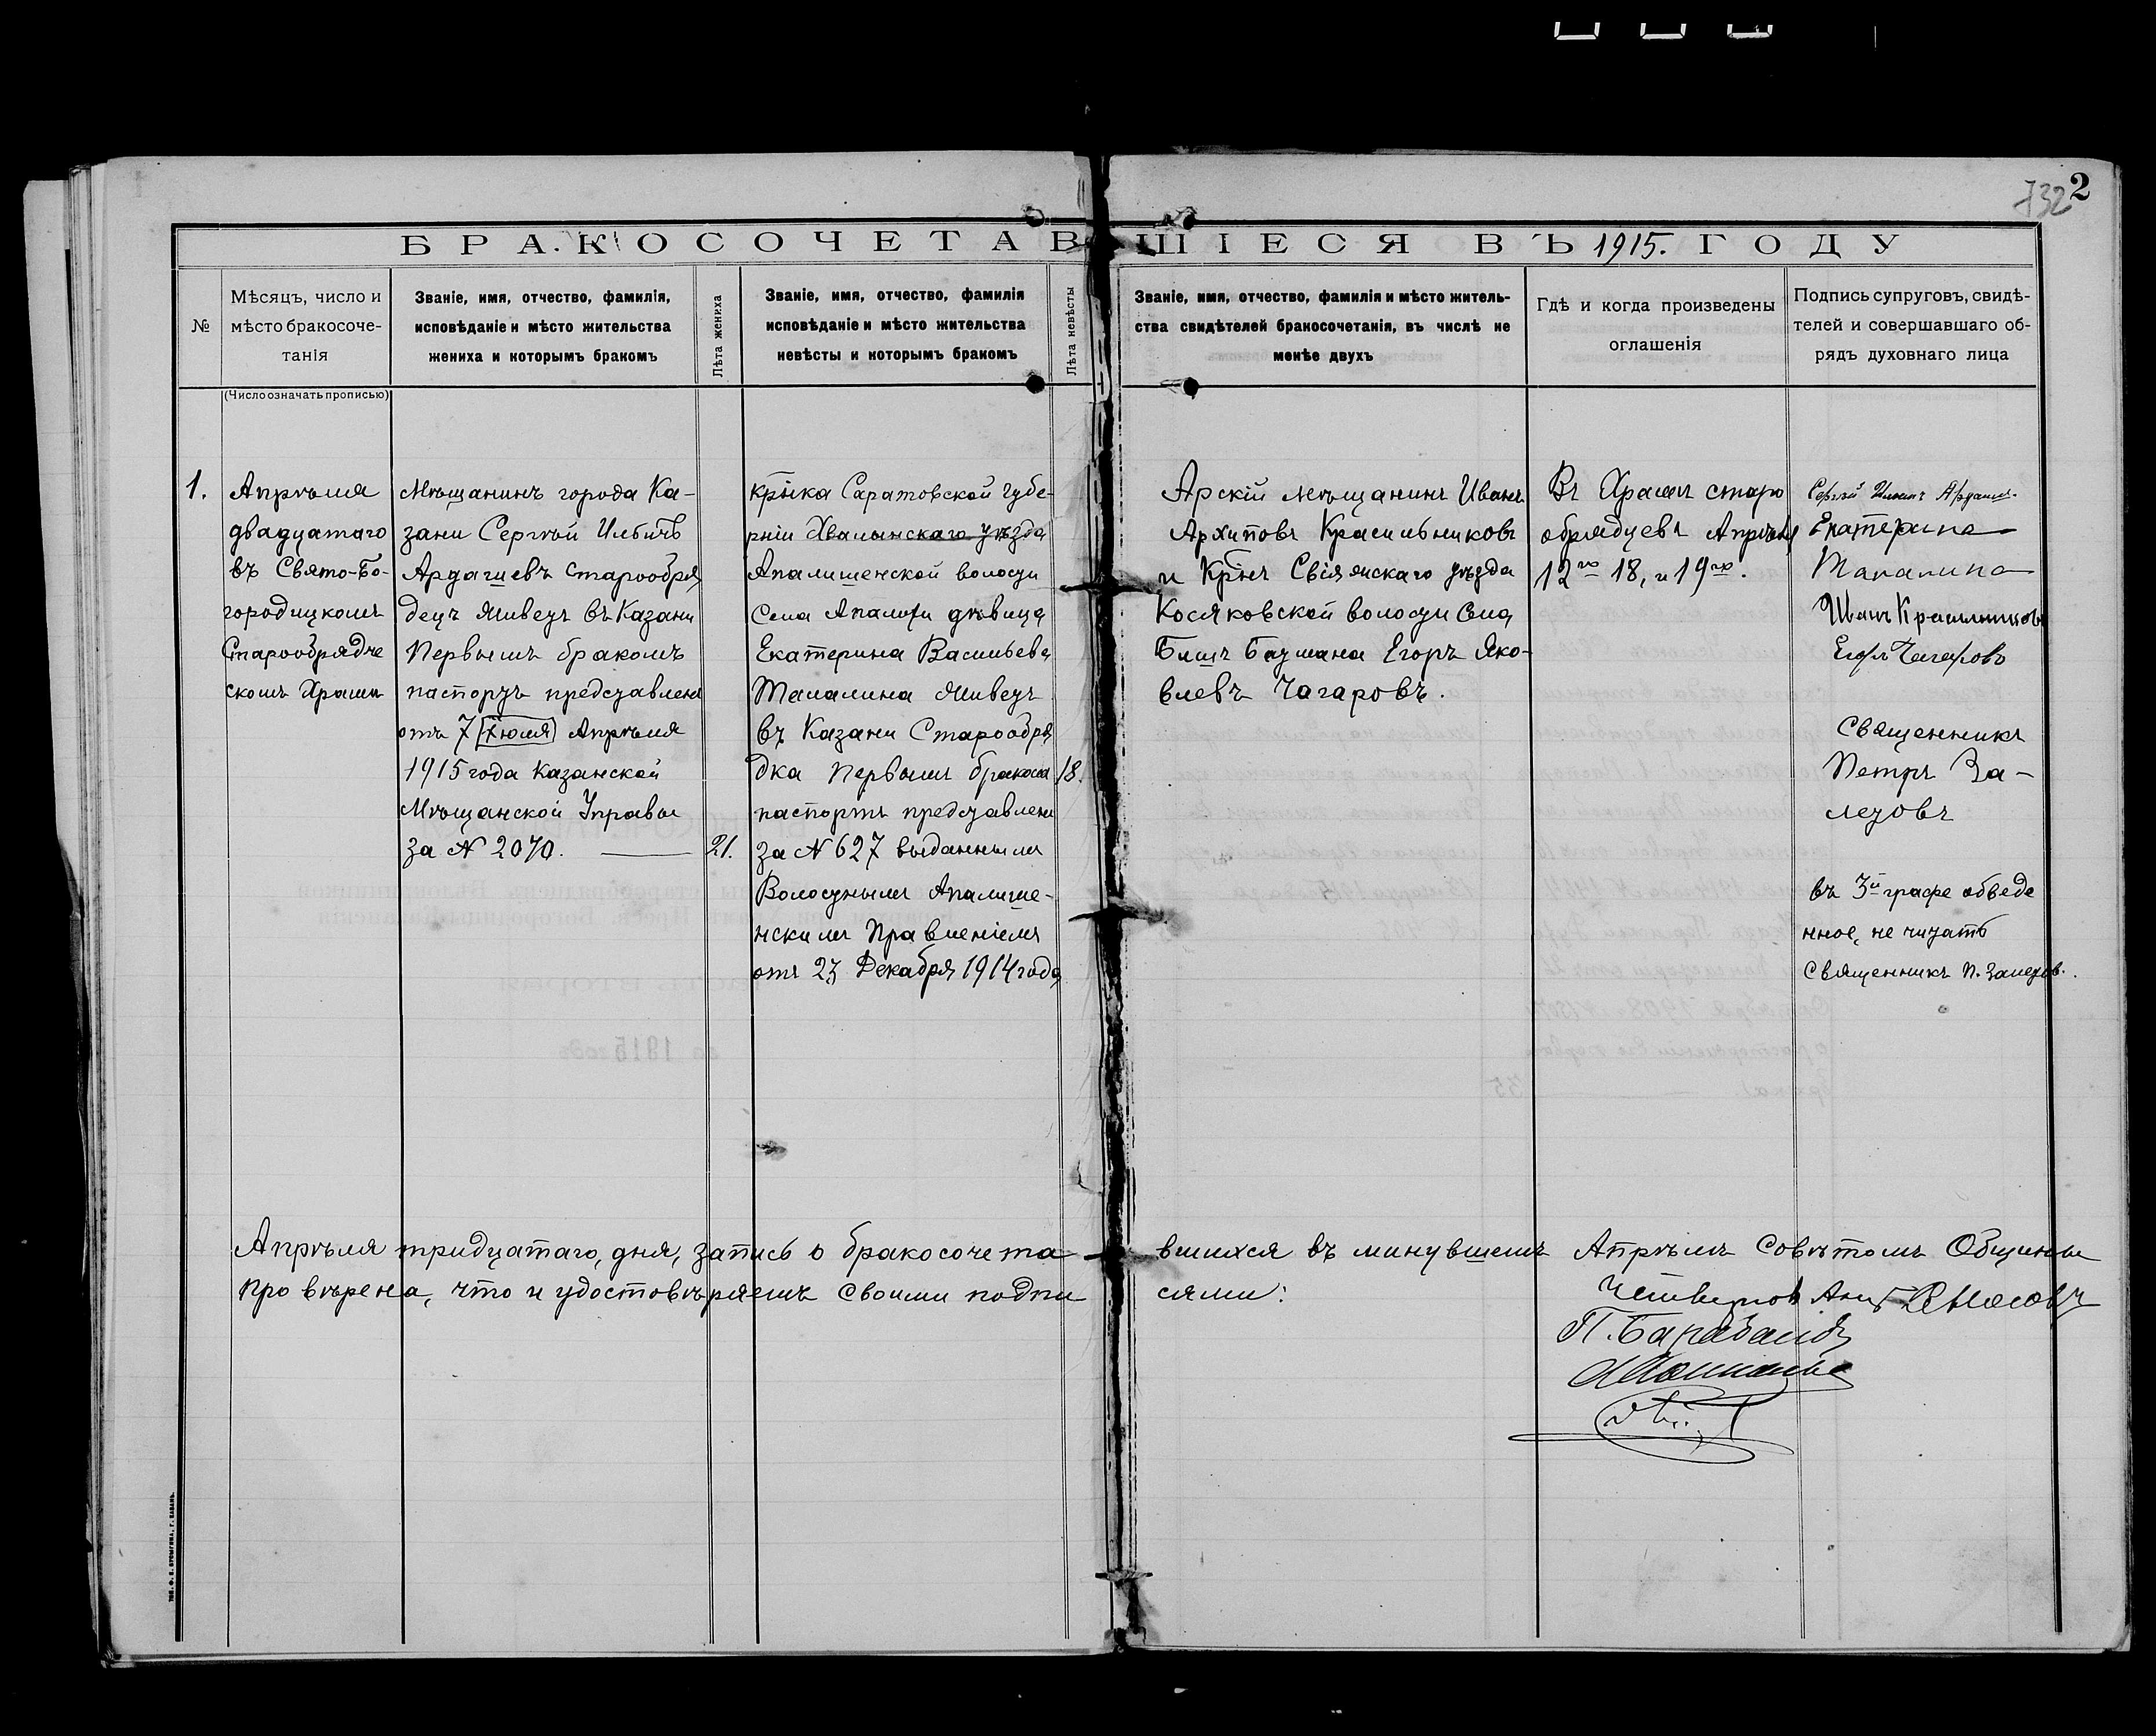 732 2
БРАКОСОЧЕТАВШІЕСЯ ВЪ 1915. ГОДУ
№
Мѣсяцъ, число и
мѣсто бракосоче-
танія
Званіе, имя, отчество, фамилія,
исповѣданіе и мѣсто жительства
жениха и которымъ бракомъ
Лѣта жениха
Званіе, имя, отчество, фамилія
исповѣданіе и мѣсто жительства
невѣсты и которымъ бракомъ
Лѣта невѣсты
Званіе, имя, отчество, фамилія и мѣсто житель-
ства свидѣтелей бракосочетанія, въ числѣ не
менѣе двухъ
Гдѣ и когда произведены
оглашенія
Подпись супруговъ, свидѣ-
телей и совершавшаго об-
рядъ духовнаго лица
(Число означать прописью)
1.
Апрѣля
двадцатаго
въ Свято-Бо-
городицкомъ
Старообрядче
скомъ Храмѣ
Мѣщанинъ города Ка-
зани Сергѣй Ильичъ
Ардашевъ старообря
децъ живетъ въ Казани
Первымъ бракомъ
паспортъ представленъ
отъ 7 Іюля Апрѣля
1915 года Казанской
Мѣщанской Управы
за № 2070.
21.
крѣнка Саратовской губе-
рніи Хвалынскаго уѣзда
Апалишенской волости
Села Апалихи дѣвица
Екатерина Васильева
Талалина живетъ
въ Казани Старообря
дка Первымъ бракомъ
паспортъ представленъ
за № 627 выданнымъ
Волостнымъ Апалише-
нскимъ Правленіемъ
отъ 23 Декабря 1914 года
18.
Арскій мѣщанинъ Иванъ
Архиповъ Красильниковъ
и Крѣнъ Свіяжскаго уѣзда
Косяковской волости Села
Бишъ Баумана Егоръ Яко-
влевъ Чагаровъ.
Въ Храмѣ старо
обрядцевъ Апрѣля
12го 18, и 19го.
Сергѣй Ильичъ Ардашъ.
Екатерина
Талалина
Иванъ Красильниковъ
Егоръ Чагаровъ
Священникъ
Петръ За-
летовъ
въ 3й графе обведе
нное, не читать
Священникъ П. Залетовъ.
Апрѣля тридцатаго, дня, запись о бракосочета вшихся въ минувшемъ Апрѣлѣ Совѣтомъ Общины
провѣрена, что и удостовѣряемъ своими подпи сями:
П. Барабанов